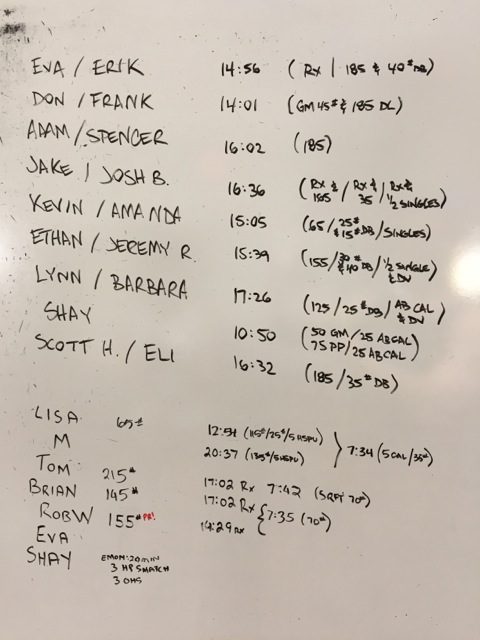 EVA / ERIK 14:56 (Rx | 185 & 40# DB)
DON / FRANK 14:01 (GM 45# & 185 DL)
ADAM / SPENCER 16:02 (185)
JAKE | JOSH B. 16:36 (Rx & 185 / Rx & 35 / Rx & 1/2 SINGLES)
KEVIN / AMANDA 15:05 (65 / 25# & 15# DB / SINGLES)
ETHAN / JEREMY R. 15:39 (155 / 30# & 40# DB / 1/2 SINGLE & DU)
LYNN / BARBARA 17:26 (125 / 25# DB / AB CAL & DU)
SHAY 10:50 (50 GM / 25 AB CAL 75 PP / 25 AB CAL)
SCOTT H. / ELI 16:32 (185 / 35# DB)
LISA 65#
M 12:54 (115# / 25# / 5 HSPU) 7:34 (5 CAL / 35#)
TOM 215# 20:37 (135# / 5 HSPU)
BRIAN 145# 17:02 Rx 7:42 (70#)
ROB W 155# PR! 17:02 Rx 7:35 (70#)
EVA 14:29 Rx
SHAY EMOM: 20 MIN
3 HP SNATCH
3 OHS